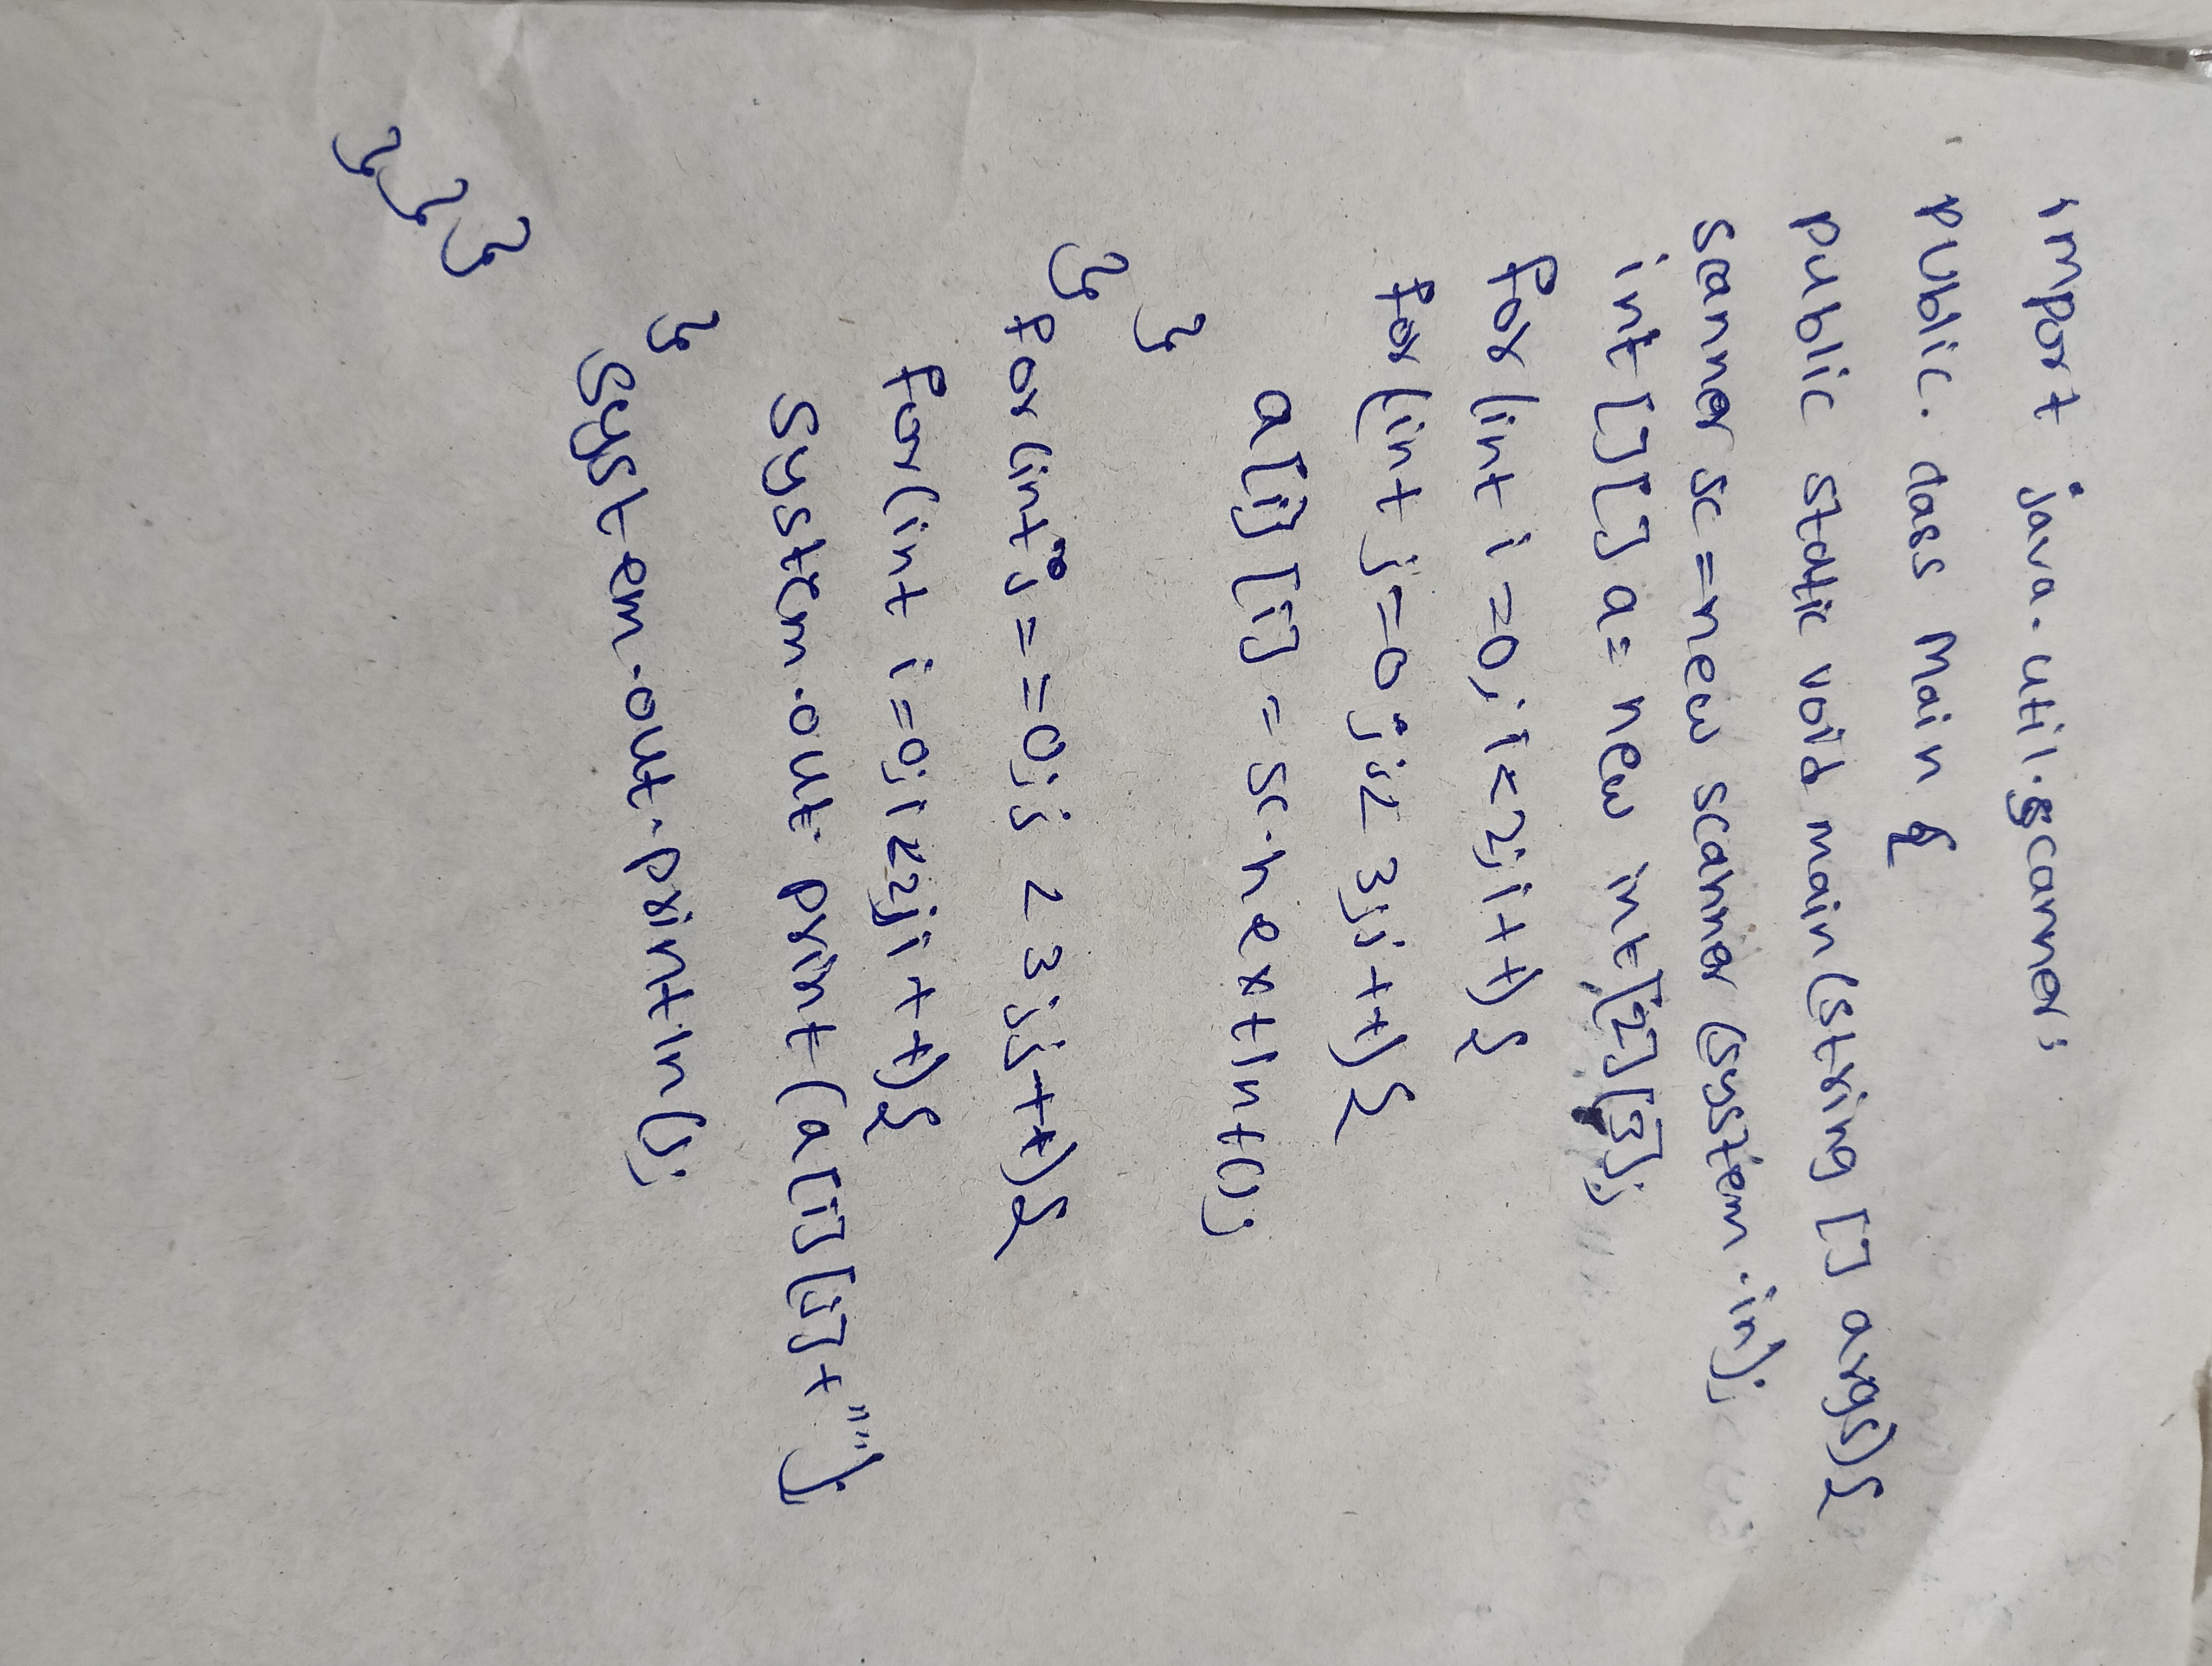 import java.util.scanner;
public. class Main {
public static void main(string [] args){
sanner sc = new scanner (system.in);
int [][] a = new int [2][3];
for (int i =0; i<2; i++){
for (int j=0; j< 3; j++){
a[i][j] = sc.nextInt();
}
}
for (int j = =0; j < 3; j++){
for (int i =0; i<2; i++){
system.out.print(a[i][j]+" ");
}
system.out.println();
}
}
}